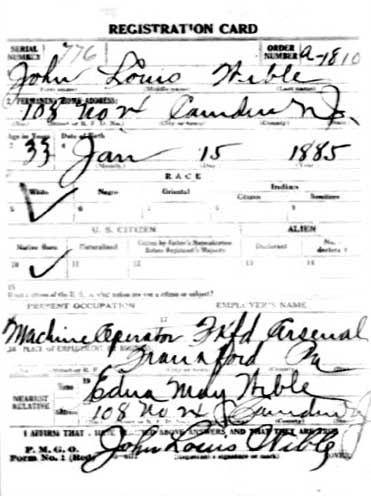 REGISTRATION CARD
SERIAL NUMBER 776 ORDER NUMBER A-1810
John Louis Wible
(First name) (Middle name) (Last name)
2 PERMANENT HOME ADDRESS:
108 No Camden NJ.
(No.) (Street or R. F. D. No.) (City or town) (County) (State)
Age in Years Date of Birth
33 Jan 15 1885
(Month.) (Day.) (Year.)
RACE
White Negro Oriental Indian
Citizen Noncitizen
5 6 7 8 9
U. S. CITIZEN ALIEN
Native Born Naturalized Citizen by Father's Naturalization Before Registrant's Majority Declarant Non-declarant
10 11 12 13 14
15
If not a citizen of the U. S., of what nation are you a citizen or subject?
PRESENT OCCUPATION EMPLOYER'S NAME
Machine Operator Fkfd Arsenal
18 PLACE OF EMPLOYMENT OR BUSINESS:
Frankford Pa
(No.) (Street or R. F. D. No.) (City or town) (County) (State)
NEAREST RELATIVE
Name 19 Edna May Wible
Address 108 No Camden NJ
I AFFIRM THAT I HAVE VERIFIED ABOVE ANSWERS AND THAT THEY ARE TRUE
P. M. G. O.
Form No. 1 (Red) John Louis Wible
(Registrant's signature or mark) (OVER)